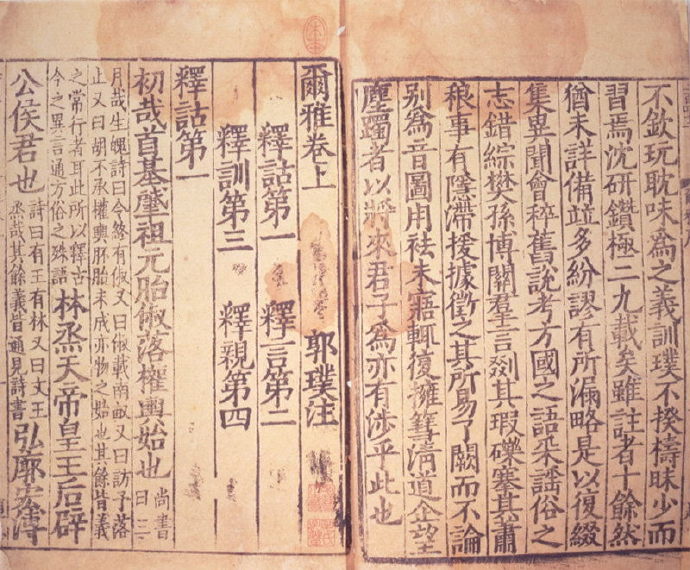 不欽玩耽味為之義訓璞不揆檮昧少而
習焉沈研鑽極二九載矣雖註者十餘然
猶未詳備竝多紛謬有所漏略是以復綴
集異聞會稡舊說考方國之語采謡俗之
志錯綜樊孫博關羣言剟其瑕礫搴其蕭
稂事有隱滯援據徵之其所易了闕而不論
别為音圖用袪未寤輒復擁篲清道企望
塵躅者以將來君子為亦有涉乎此也
爾雅卷上 郭璞注
釋詁第一 釋言第二
釋訓第三 釋親第四
釋詁第一
初哉首基肈祖元胎俶落權輿始也 尚書曰三
月哉生魄詩曰令終有俶又曰俶載南畝又曰訪予落
止又曰胡不承權輿胚胎未成亦物之始也其餘皆義
之常行者耳此所以釋古今之異言通方俗之殊語 林烝天帝皇王后辟
公侯君也 詩曰有王有林又曰文王烝哉其餘義皆通見詩書 弘廓宏溥